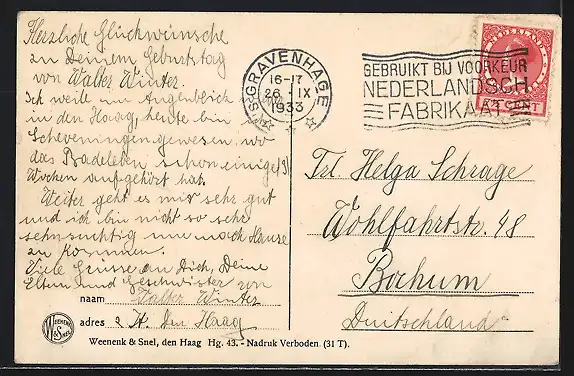 Herzliche Glückwünsche
zu Deinem Geburtstag
von Walter Winter.
Ich weile im Augenblick
in den Haag, heute bin
Scheveningen gewesen, wo
das Badeleben schon einige (3)
Wochen aufgehört hat.
Weiter geht es mir sehr gut
und ich bin nicht so sehr
sehnsüchtig nach Hause
zu kommen.
Viele Grüsse an Dich, Deine
Eltern und Geschwister von
naam Walter Winter
adres z. Zt. Den Haag
Weenenk & Snel, den Haag Hg. 43. - Nadruk Verboden. (31 T).
WEENENK & SNEL
'S-GRAVENHAGE
16-17
26 IX
1933
GEBRUIKT BIJ VOORKEUR
NEDERLANDSCH
FABRIKAAT
NEDERLAND
CENT
Frl. Helga Schrage
Wohlfahrtstr. 48
Bochum
Deutschland